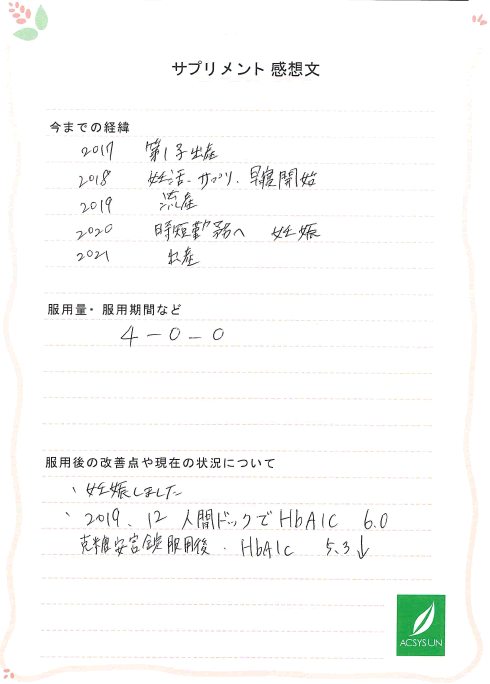 サプリメント 感想文
今までの経緯
2017 第1子出産
2018 妊活、サプリ、早寝開始
2019 流産
2020 時短勤務へ 妊娠
2021 出産
服用量・服用期間など
4-0-0
服用後の改善点や現在の状況について
、妊娠しました
、2019、12 人間ドックでHbA1C 6.0
克糖安宮錠服用後、HbA1C 5.3↓
ACSYSUN